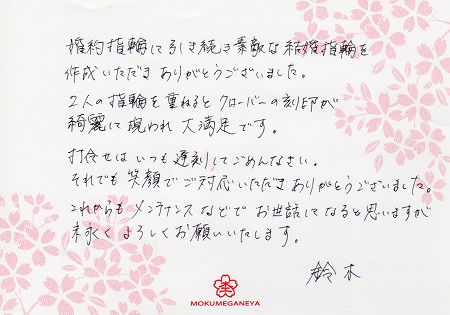 婚約指輪に引き続き素敵な結婚指輪を
作成いただきありがとうございました。
2人の指輪を重ねるとクローバーの刻印が
綺麗に現われ大満足です。
打合せはいつも遅刻してごめんなさい。
それでも笑顔でご対応いただきありがとうございました。
これからもメンテナンスなどでお世話になると思いますが
末永くよろしくお願いいたします。
鈴木
MOKUMEGANEYA